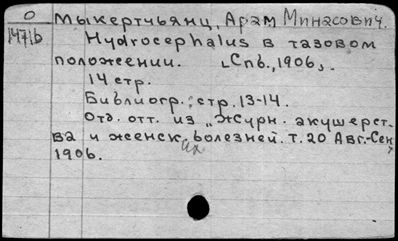 О Мыкертчьянц, Арам Минасович.
1471б Hydrocephalus в тазовом
положении. [Спб., 1906].
14 стр.
Библиогр.: стр. 13-14.
Отд. отт. из „Журн. акушерст-
ва и женск. болезней. т. 20 Авг.-Сен
1906.